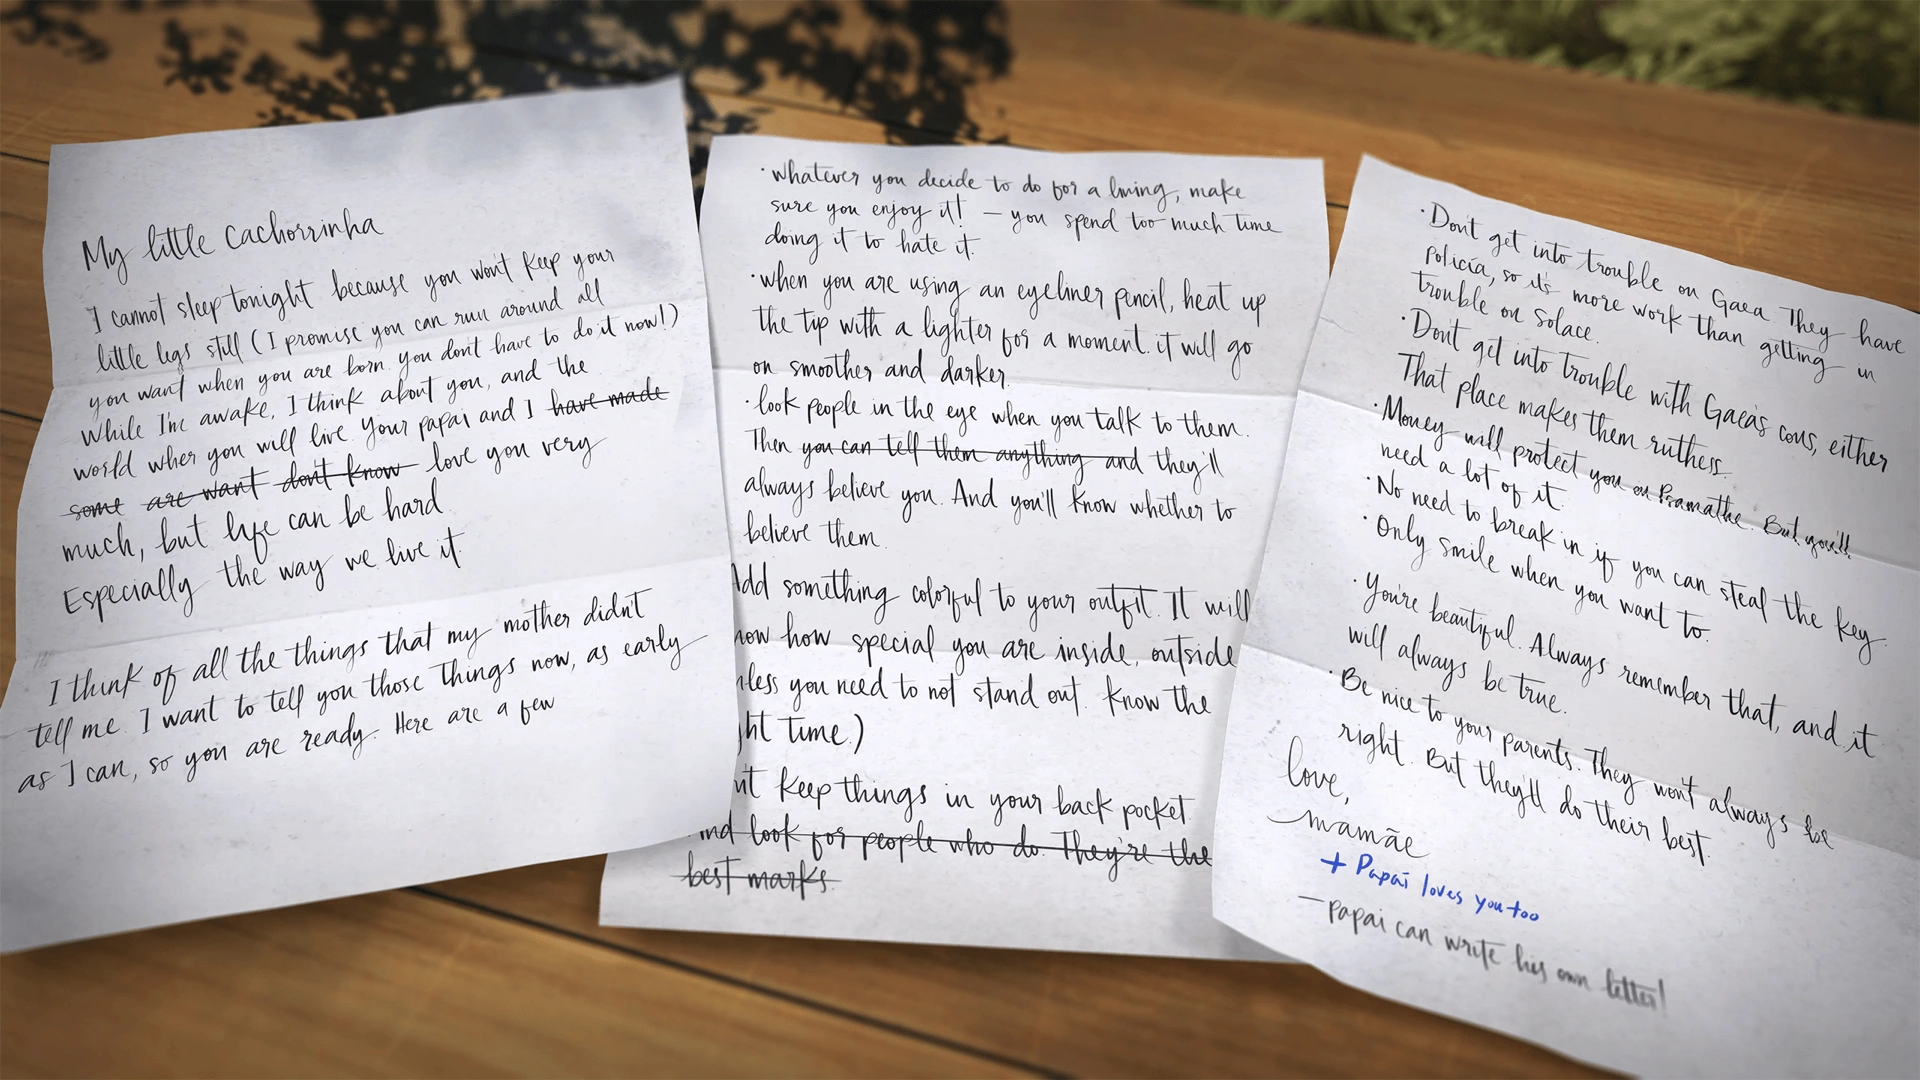 My little cachorrinha
I cannot sleep tonight because you won't keep your
little legs still (I promise you can run around all
you want when you are born. you don't have to do it now!)
While I'm awake, I think about you, and the
world wher you will live. Your papai and I have made
some are want don't know love you very
much, but life can be hard.
Especially the way we live it.
I think of all the things that my mother didn't
tell me. I want to tell you those things now, as early
as I can, so you are ready. Here are a few
· Whatever you decide to do for a living, make
sure you enjoy it! – you spend too much time
doing it to hate it.
· when you are using an eyeliner pencil, heat up
the tip with a lighter for a moment. it will go
on smoother and darker.
· look people in the eye when you talk to them.
Then you can tell them anything and they'll
always believe you. And you'll know whether to
believe them.
Add something colorful to your outfit. It will
how how special you are inside, outside
nless you need to not stand out. Know the
ht time.)
n't keep things in your back pocket
and look for people who do. They're the
best marks.
· Don't get into trouble on Gaea They have
policía, so it's more work than getting in
trouble on Solace.
· Don't get into trouble with Gaea's cons, either
That place makes them ruthess.
· Money will protect you on Pramathe. But you'll
need a lot of it.
· No need to break in if you can steal the key.
· Only smile when you want to.
· You're beautiful. Always remember that, and it
will always be true.
· Be nice to your parents. They won't always be
right. But they'll do their best.
love,
mamãe
+ Papai loves you too
– papai can write his own letter!